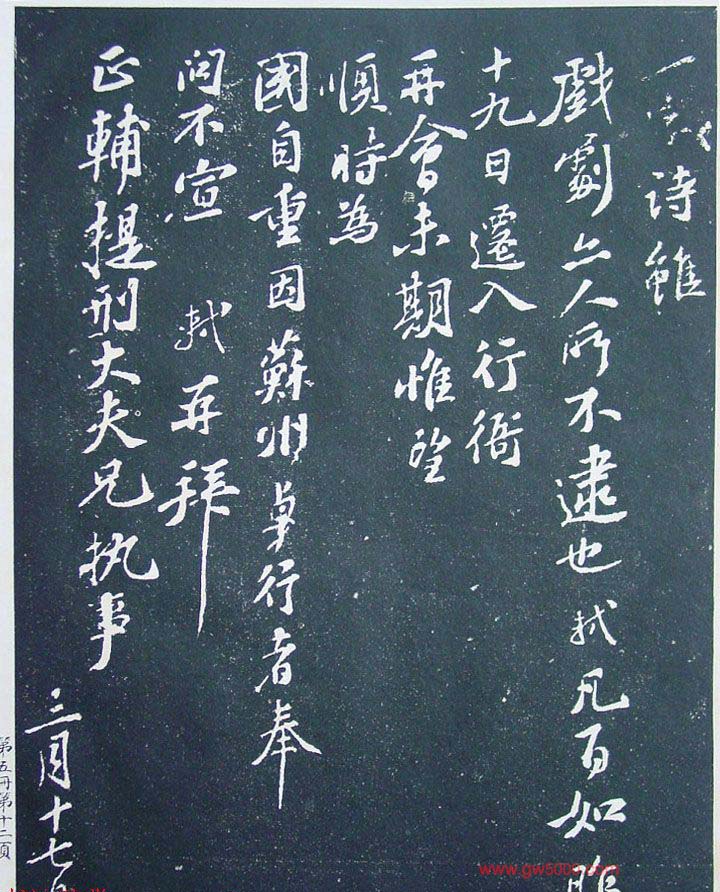 一詩雖
戲劇亦人所不逮也軾凡百如昨
十九日遷入行衙
再會未期惟望
順時為
國自重因蘇州卓行者奉
問不宣 軾再拜
正輔提刑大夫兄执事
三月十七日
第五冊第十二頁
www.gw5000.com